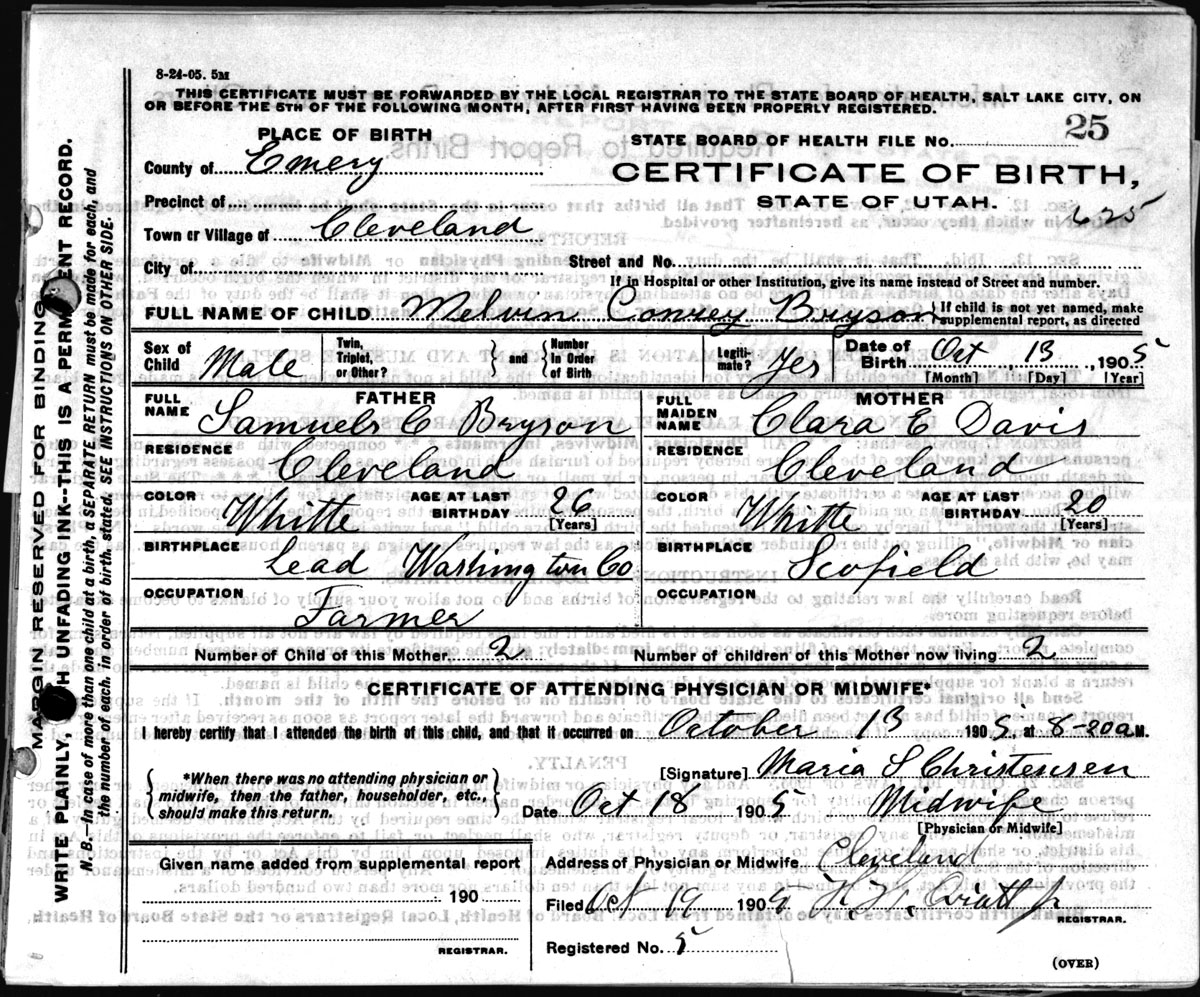 8-24-05. 5M
THIS CERTIFICATE MUST BE FORWARDED BY THE LOCAL REGISTRAR TO THE STATE BOARD OF HEALTH, SALT LAKE CITY, ON
OR BEFORE THE 5TH OF THE FOLLOWING MONTH, AFTER FIRST HAVING BEEN PROPERLY REGISTERED.
PLACE OF BIRTH
STATE BOARD OF HEALTH FILE NO. 25
County of Emery
CERTIFICATE OF BIRTH,
Precinct of
STATE OF UTAH.
625
Town or Village of Cleveland
City of
Street and No.
If in Hospital or other Institution, give its name instead of Street and number.
FULL NAME OF CHILD Melvin Conrey Bryson
If child is not yet named, make
supplemental report, as directed
Sex of Child Male
Twin, Triplet, or Other?
and
Number in Order of Birth
Legitimate? Yes
Date of Birth Oct 13, 1905
[Month] [Day] [Year]
FATHER
FULL NAME Samuels C Bryson
MOTHER
FULL MAIDEN NAME Clara E Davis
RESIDENCE Cleveland
RESIDENCE Cleveland
COLOR White
AGE AT LAST BIRTHDAY 26 [Years]
COLOR White
AGE AT LAST BIRTHDAY 20 [Years]
BIRTHPLACE Lead Washington Co
BIRTHPLACE Scofield
OCCUPATION Farmer
OCCUPATION
Number of Child of this Mother 2
Number of children of this Mother now living 2
CERTIFICATE OF ATTENDING PHYSICIAN OR MIDWIFE*
I hereby certify that I attended the birth of this child, and that it occurred on October 13 1905, at 8-20 a M.
*When there was no attending physician or
midwife, then the father, householder, etc.,
should make this return.
[Signature] Maria S Christensen
Date Oct 18 1905 Midwife
[Physician or Midwife]
Given name added from supplemental report
190
REGISTRAR.
Address of Physician or Midwife Cleveland
Filed Oct 19 1905 H. H. Oviatt Jr
REGISTRAR.
Registered No. 5
(OVER)
MARGIN RESERVED FOR BINDING
WRITE PLAINLY, WITH UNFADING INK--THIS IS A PERMANENT RECORD.
N. B.—In case of more than one child at a birth, a SEPARATE RETURN must be made for each, and
the number of each, in order of birth, stated. SEE INSTRUCTIONS ON OTHER SIDE.